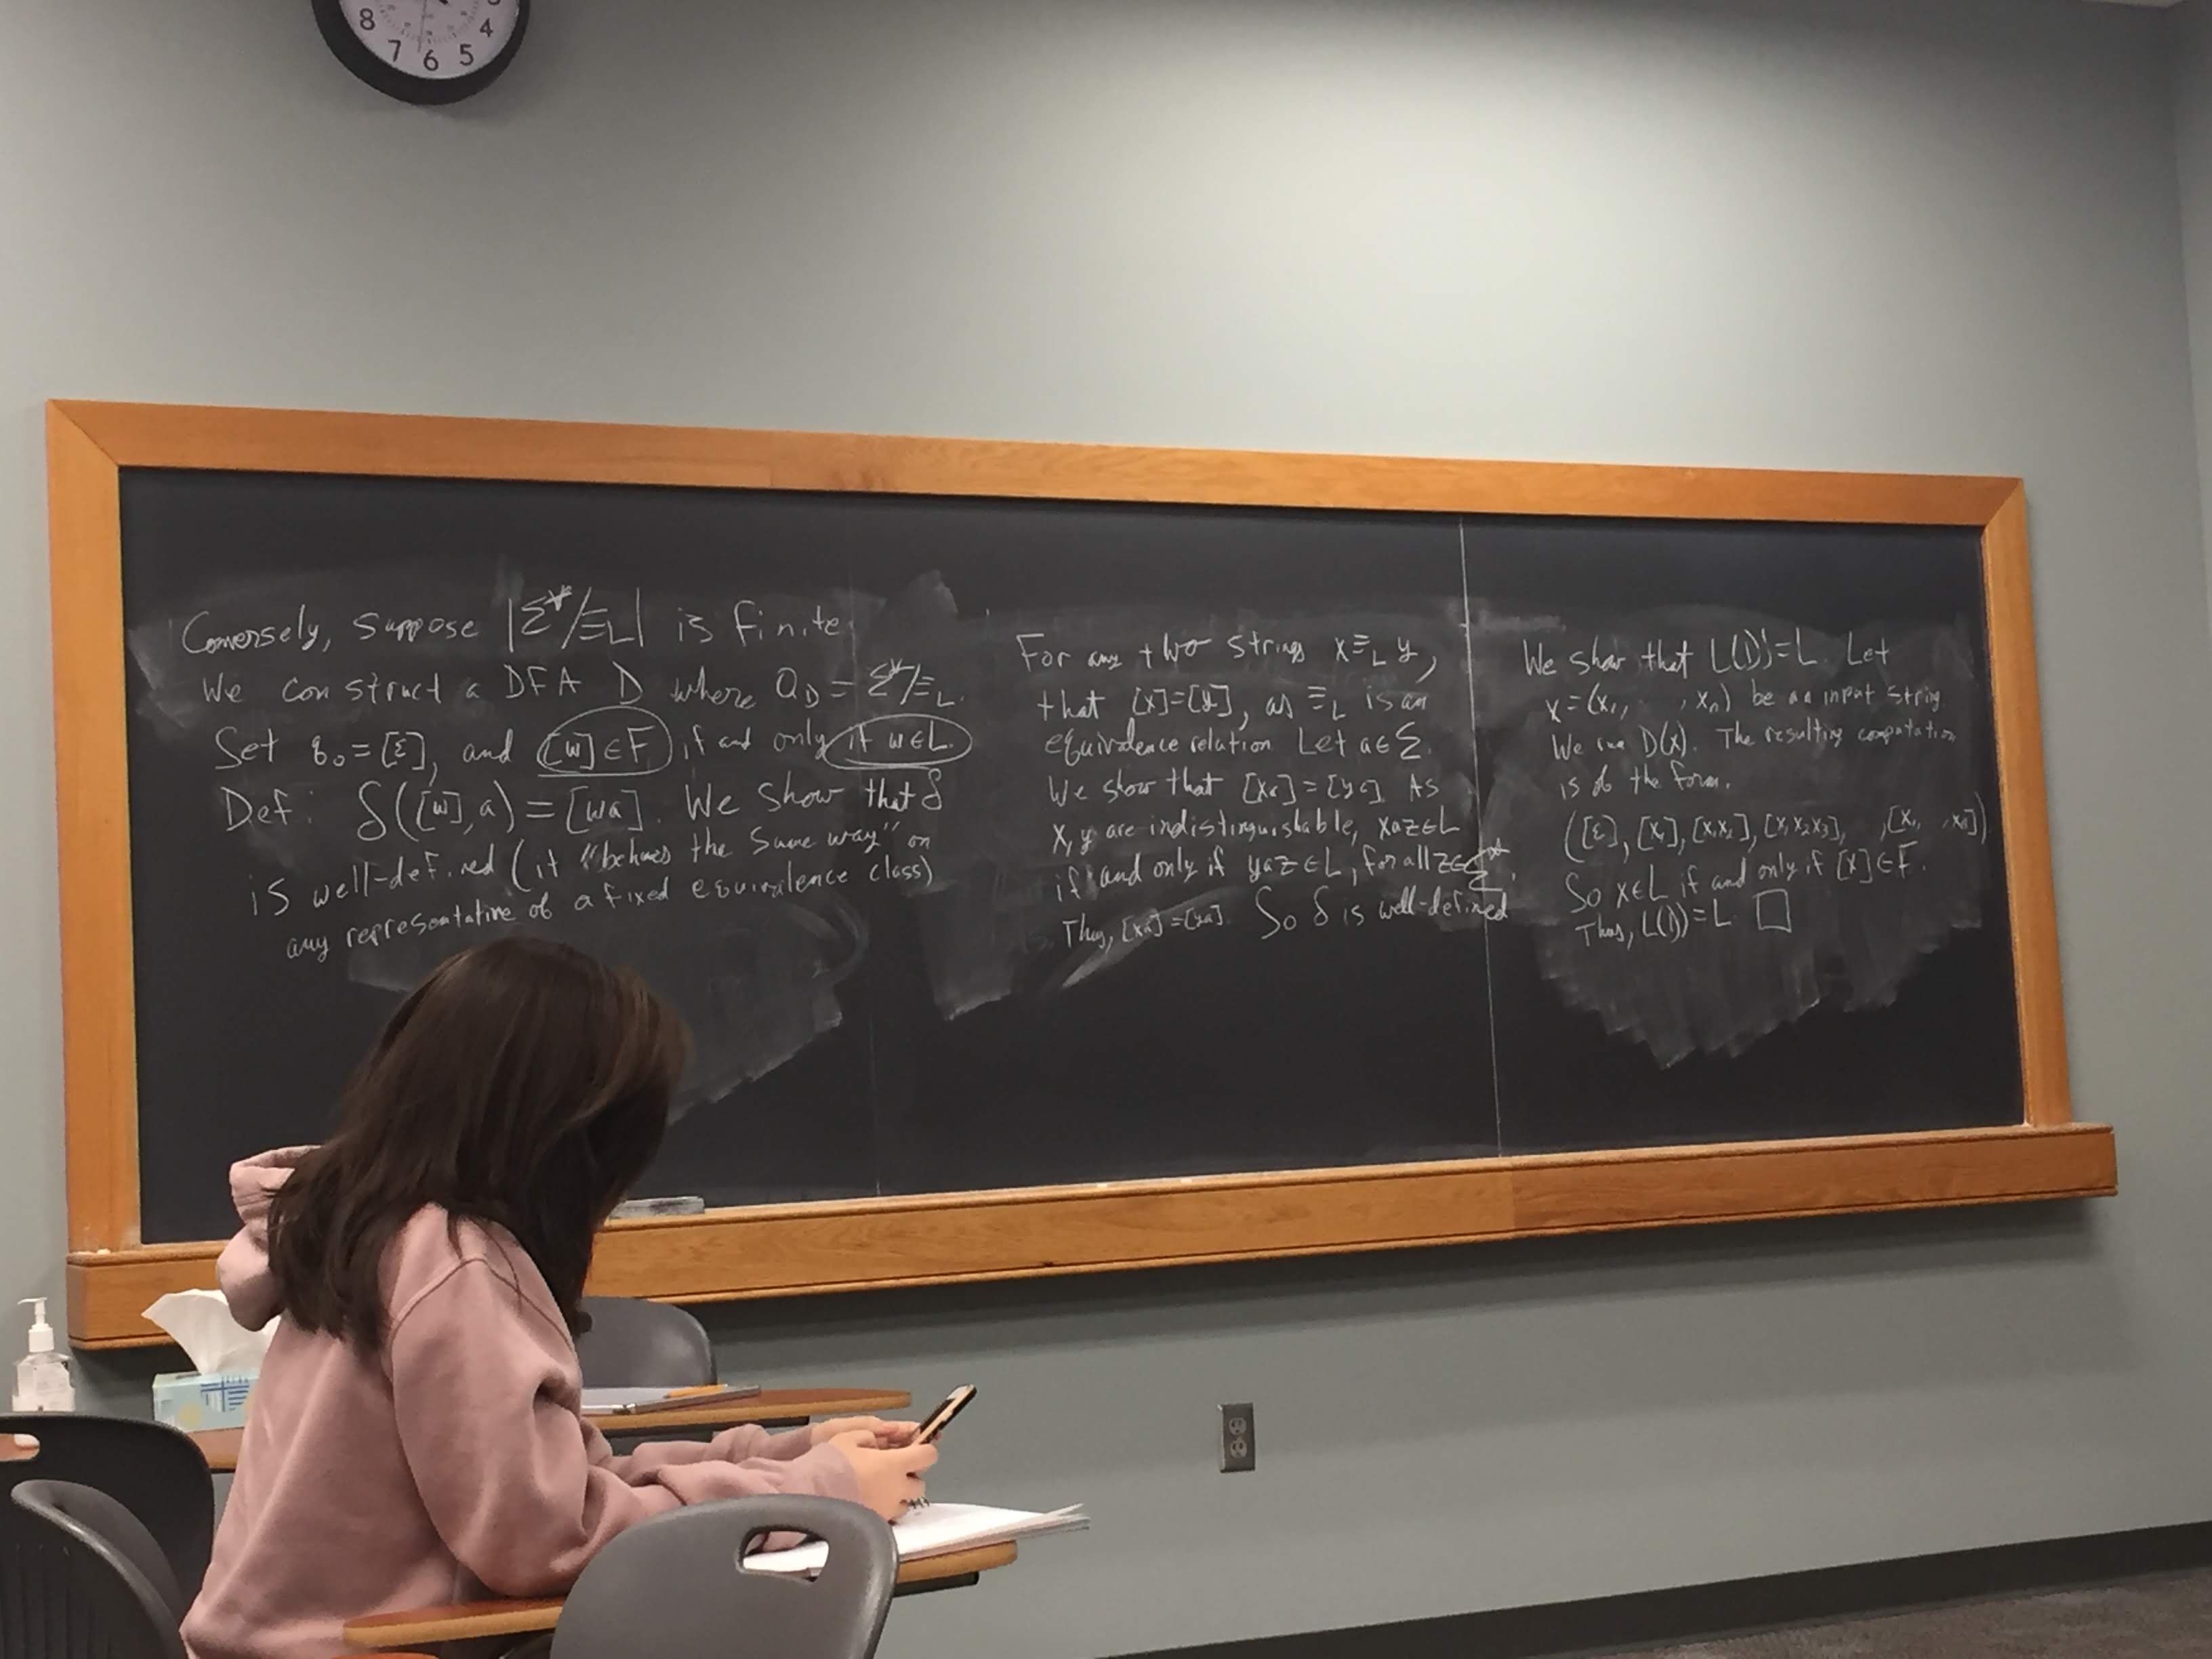 8
7
6
5
4
Conversely, suppose |Σ*/≡L| is finite.
We construct a DFA D where QD = Σ*/≡L.
Set q0 = [ε], and [w] ∈ F if and only if w ∈ L.
Def: δ([w], a) = [wa]. We show that δ
is well-defined (it "behaves the same way" on
any representative of a fixed equivalence class)
For any two strings x ≡L y,
that [x] = [y], as ≡L is an
equivalence relation. Let a ∈ Σ.
We show that [xa] = [ya]. As
x, y are indistinguishable, xaz ∈ L
if and only if yaz ∈ L, for all z ∈ Σ*.
Thus, [xa] = [ya]. So δ is well-defined
We show that L(D) = L. Let
x = (x1, . . , xn) be an input string.
We run D(x). The resulting computation
is of the form.
([ε], [x1], [x1x2], [x1x2x3], , [x1, , xn])
So x ∈ L if and only if [x] ∈ F.
Thus, L(D) = L □